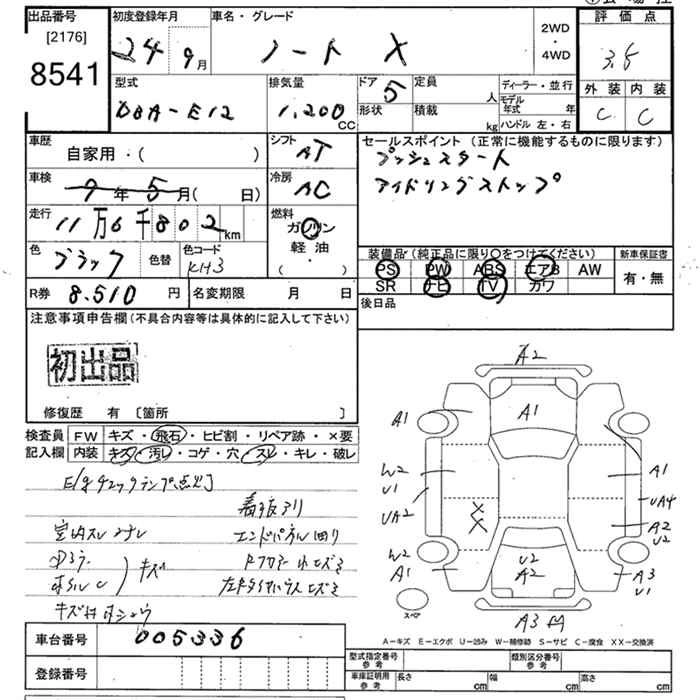 出品番号
[2176]
8541
初度登録年月
24 9月
車名・グレード
ノート X
2WD
・
4WD
評価点
3.5
外装 内装
C C
型式
DBA-E12
排気量
1,200
CC
ドア 5
形状
定員
人
積載
kg
ディーラー・並行
モデル年式 年
ハンドル 左・右
車歴
自家用・( )
シフト
AT
セールスポイント (正常に機能するものに限ります)
プッシュスタート
アイドリングストップ
車検
9年 5月( 日)
冷房
AC
走行
11万6千802 km
燃料
ガソリン
軽・油
( )
色 ブラック
色替
色コード
KH3
装備品(純正品に限り〇をつけてください)
新車保証書
PS PW ABS エアB AW
有・無
SR ナビ TV カワ
R券 8.510 円
名変期限 月 日
後日品
注意事項申告欄(不具合内容等は具体的に記入して下さい)
初出品
修復歴 有 〔箇所 〕
検査員 FW キズ・飛石・ヒビ割・リペア跡・×要
記入欄 内装 キズ・汚レ・コゲ・穴・スレ・キレ・破レ
A2
A1
A1
W2
U1
UA2
W2
A1
XX
U2
A2
A1
UA4
A2
U2
A3
U1
A3
スペア
E/gチェックランプ点灯
室内スレ
キズ
エンドパネル凹リ
A-キズ E-エクボ U-凹み W-補修跡 S-サビ C-腐食 XX-交換済
車台番号 005336
登録番号
型式指定番号
参考
類別区分番号
参考
車庫証明用
参考
長さ cm
幅 cm
高さ cm